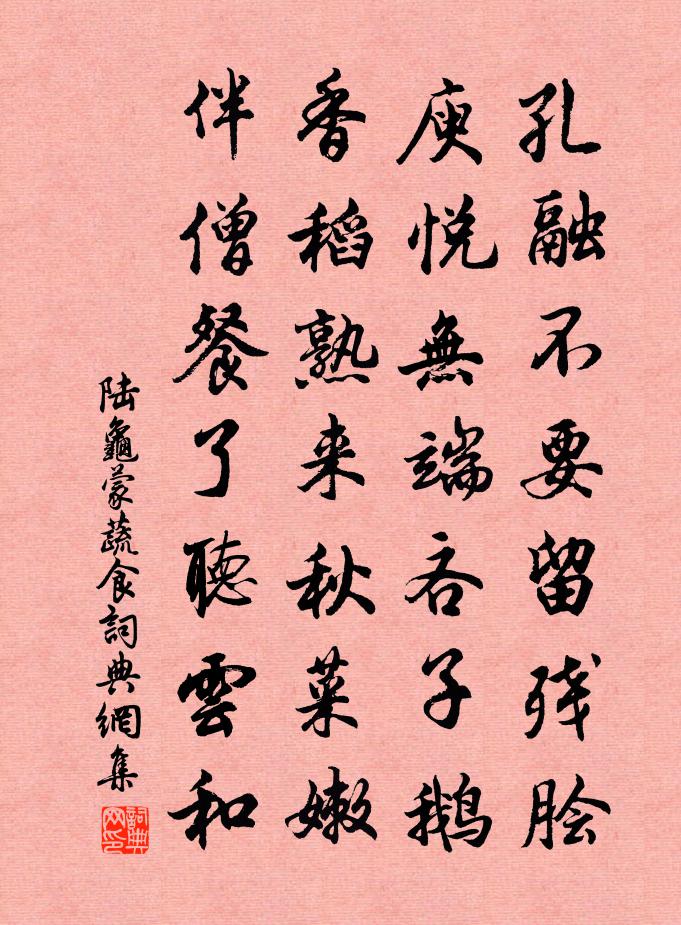 孔融不要留残脍
庾悦無端吝子鹅
香稻熟来秋菜嫩
伴僧餐了聽雲和
陆龜蒙蔬食詞典網集
詞典网印